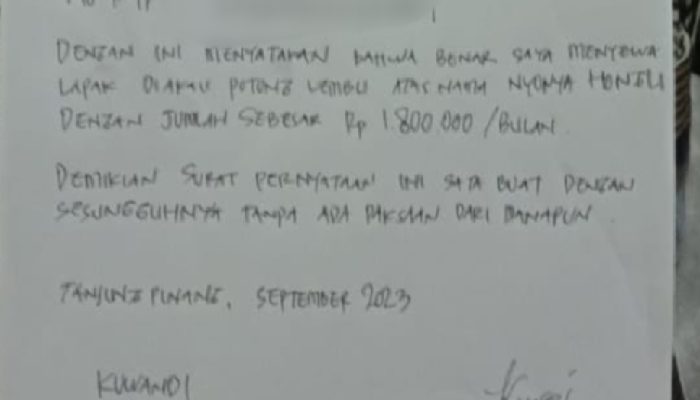 DENGAN INI MENYATAKAN BAHWA BENAR SAYA MENYEWA
LAPAK DIAKAU POTONG LEMBU ATAS NAMA NYONYA
DENGAN JUMLAH SEBESAR Rp 1.800.000 /BULAN
DEMIKIAN SURAT PERNYATAAN INI SAYA BUAT DENGAN
SESUNGGUHNYA TANPA ADA PAKSAAN DARI MANAPUN
TANJUNG PINANG, SEPTEMBER 2023
KUWANDI